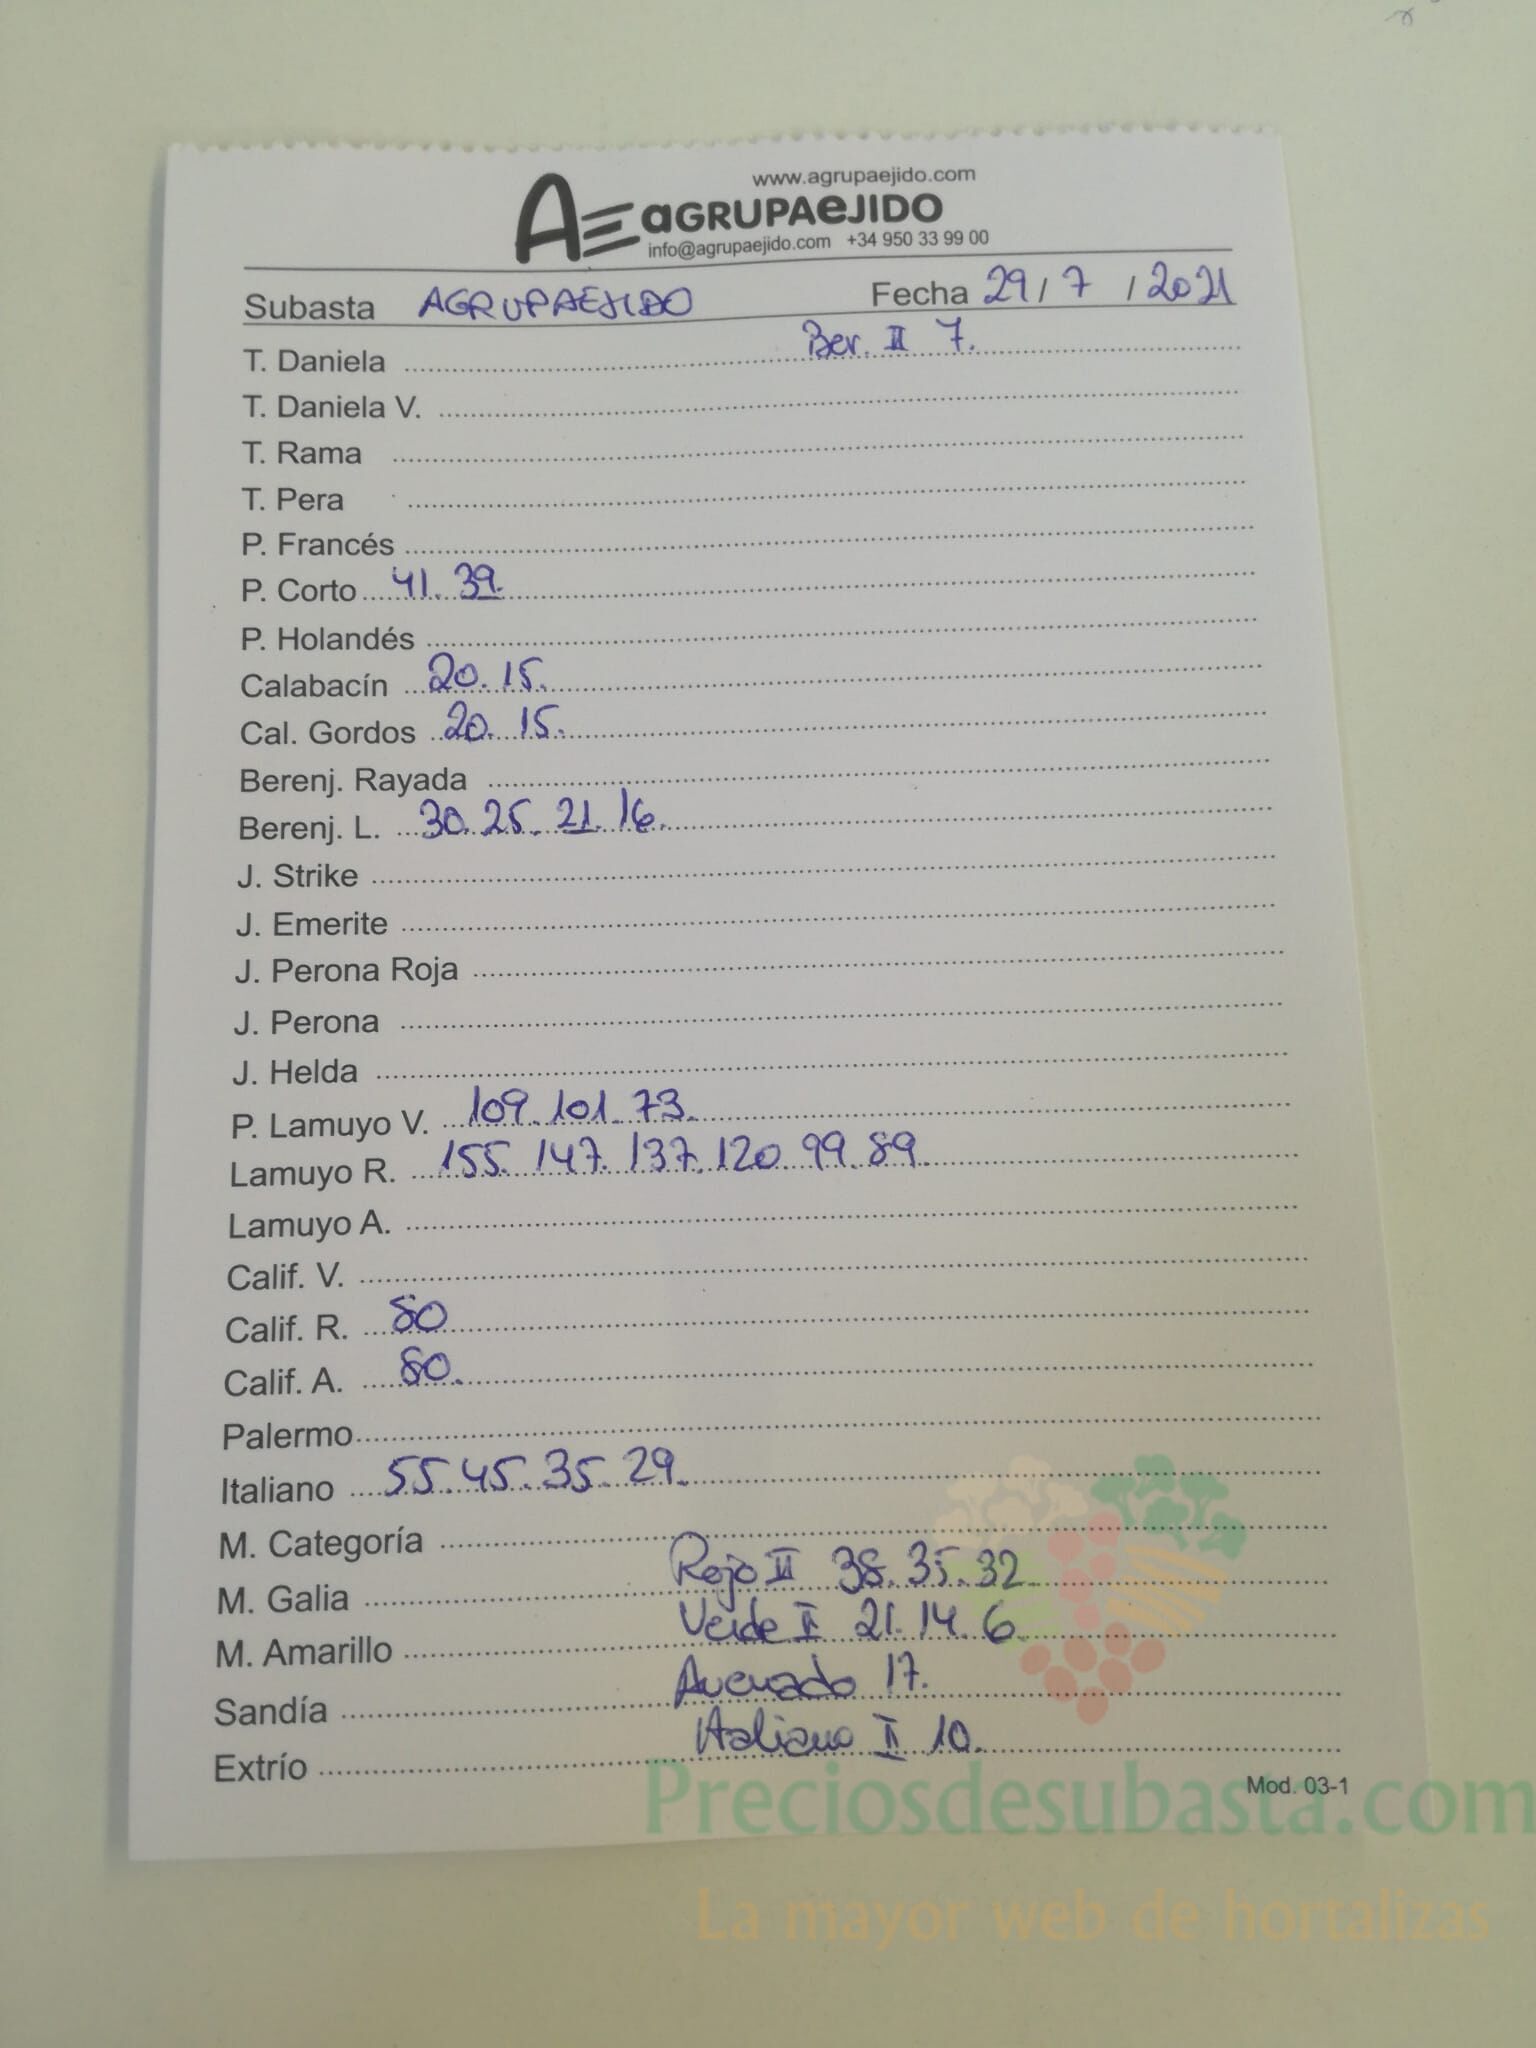 www.agrupaejido.com
AE aGRUPAeJIDO
info@agrupaejido.com +34 950 33 99 00
Subasta AGRUPAEJIDO Fecha 29/7/2021
Ber. II 7.
T. Daniela
T. Daniela V.
T. Rama
T. Pera
P. Francés
P. Corto 41. 39.
P. Holandés
Calabacín 20. 15.
Cal. Gordos 20. 15.
Berenj. Rayada
Berenj. L. 30. 25. 21. 16.
J. Strike
J. Emerite
J. Perona Roja
J. Perona
J. Helda
P. Lamuyo V. 109. 101. 73.
Lamuyo R. 155. 147. 137. 120. 99. 89.
Lamuyo A.
Calif. V.
Calif. R. 80
Calif. A. 80.
Palermo
Italiano 55. 45. 35. 29.
M. Categoría
Rojo II 38. 35. 32.
M. Galia
Verde II 21. 14. 6.
M. Amarillo
Averado 17.
Sandía
Italiano II 10.
Extrío
Mod. 03-1
Preciosdesubasta.com
La mayor web de hortalizas